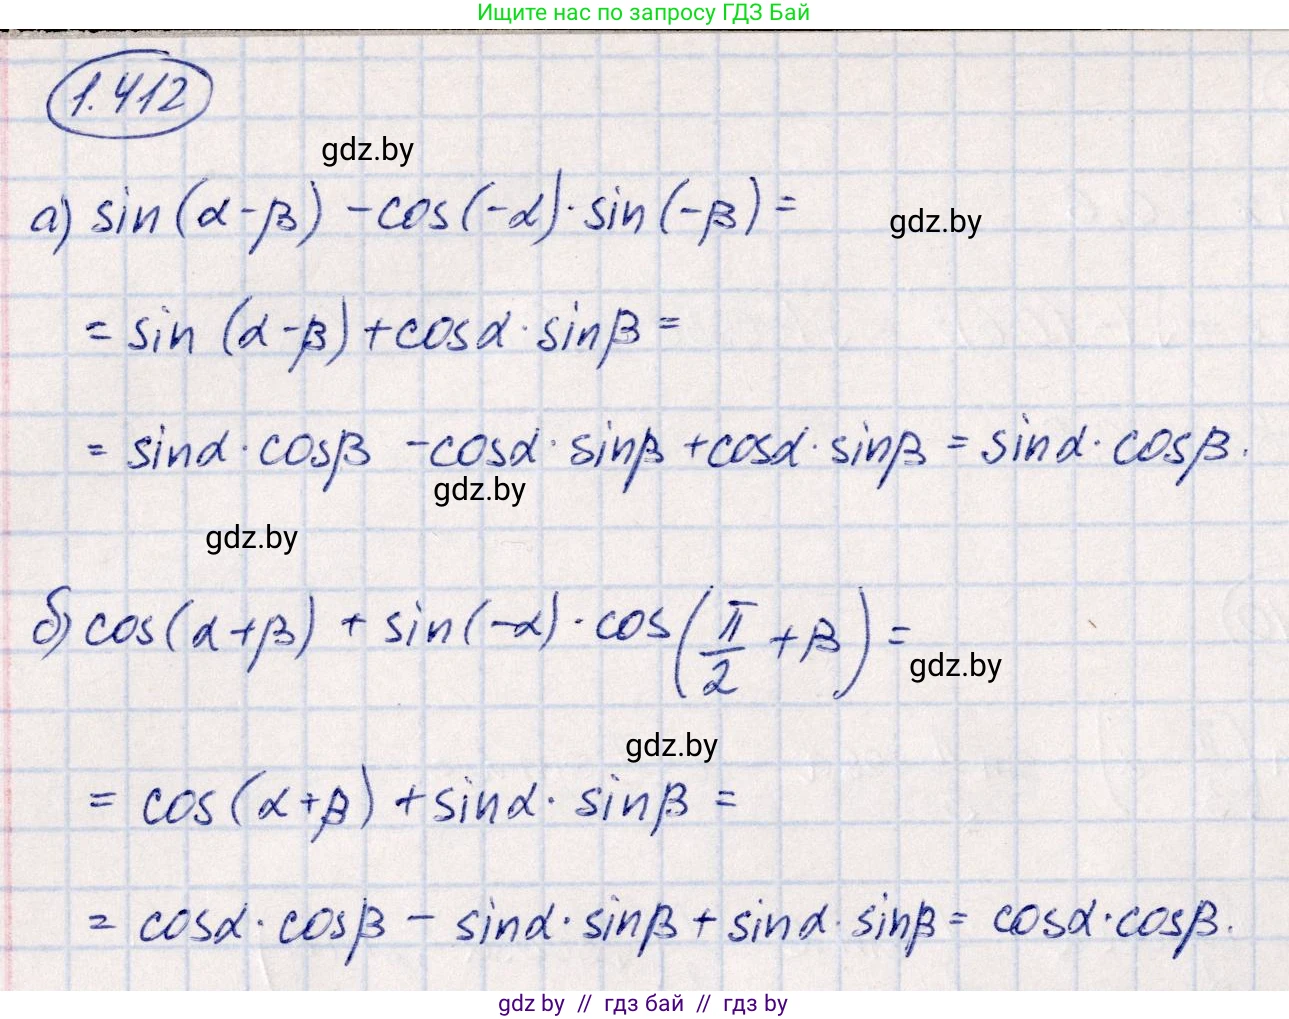 Ищите нас по запросу ГДЗ Бай
1.412
gdz.by
а) sin(α-β) -cos(-α)·sin(-β)=
gdz.by
= sin (α-β)+cosα·sinβ=
= sinα·cosβ -cosα·sinβ+cosα·sinβ = sinα·cosβ.
gdz.by
gdz.by
б) cos(α+β) + sin(-α)·cos(π/2+β)=
gdz.by
gdz.by
= cos(α+β)+sinα·sinβ=
= cosα·cosβ - sinα·sinβ+sinα·sinβ= cosα·cosβ.
gdz by // гдз бай // гдз by